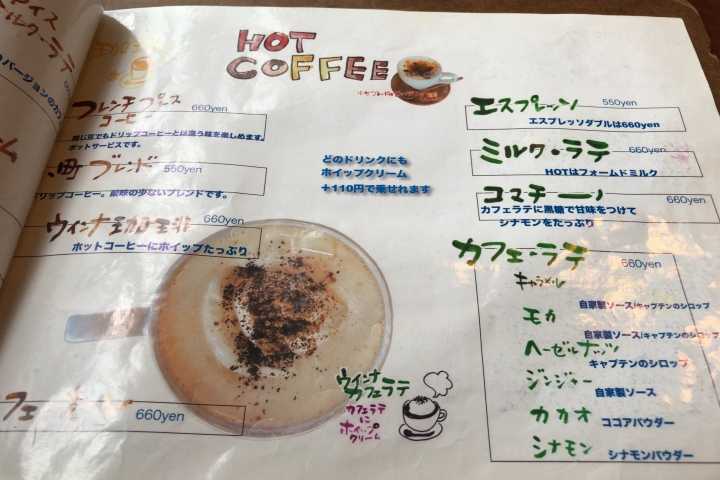 アイス
ミルク・ラテ
HOT
COFFEE
フレンチプレス
コーヒー
660yen
同じ豆でもドリップコーヒーとは違う味を楽しめます。
ポットサービスです。
ブレンド
550yen
ドリップコーヒー。酸味の少ないブレンドです。
ウィンナ珈琲
660yen
ホットコーヒーにホイップたっぷり
どのドリンクにも
ホイップクリーム
+110円で乗せれます
660yen
ウィンナ
カフェラテ
カフェラテ
に
ホイップ
クリーム
エスプレッソ
550yen
エスプレッソダブルは660yen
ミルク・ラテ
660yen
HOTはフォームドミルク
コマチーノ
660yen
カフェラテに黒糖で甘味をつけて
シナモンをたっぷり
カフェ・ラテ
660yen
キャラメル
自家製ソース/キャプテンのシロップ
モカ
自家製ソース/キャプテンのシロップ
ヘーゼルナッツ
キャプテンのシロップ
ジンジャー
自家製ソース
カカオ
ココアパウダー
シナモン
シナモンパウダー